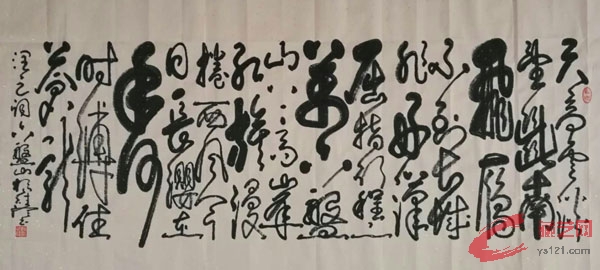 天高云淡
望断南
飞雁
不到长城
非好汉
屈指行程二
万六盘
山上高峰
红旗漫
卷西风今
日长缨在
手何
时缚住
苍龙
泽已词六盘山
ys121.com